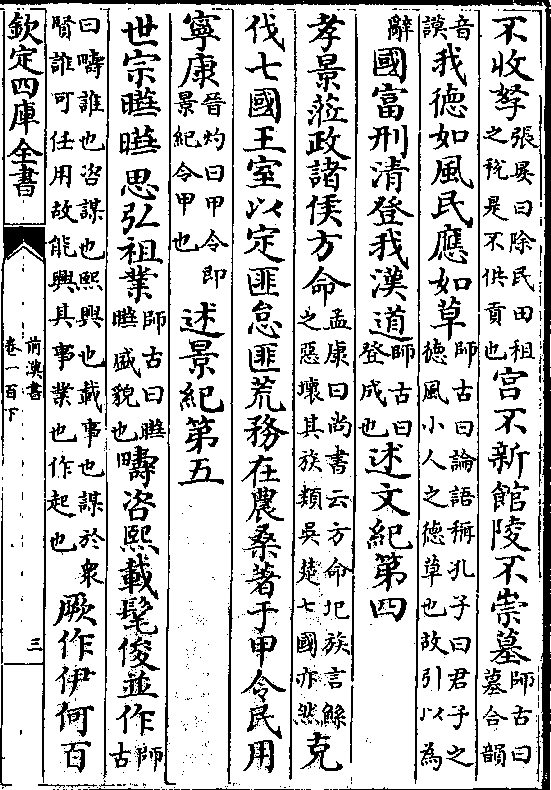 不收孥張晏曰除民田租之稅是不供貢也宮不新館陵不崇墓師古曰墓合韻
音謨我德如風民應如草師古曰論語稱孔子曰君子之德風小人之德草也故引以為
辭國富刑清登我漢道師古曰登成也述文紀第四
孝景蒞政諸侯方命孟康曰尚書云方命圮族言鯀之惡壞其族類吳楚七國亦然克
伐七國王室以定匪怠匪荒務在農桑著于甲令民用
寧康晉灼曰甲令即景紀令甲也述景紀第五
世宗曄曄思弘祖業師古曰曄曄盛貌也疇咨熙載髦俊並作師古
曰疇誰也咨謀也熙興也載事也謀於衆賢誰可任用故能興其事業也作起也厥作伊何百
欽定四庫全書
前漢書
卷一百下
三